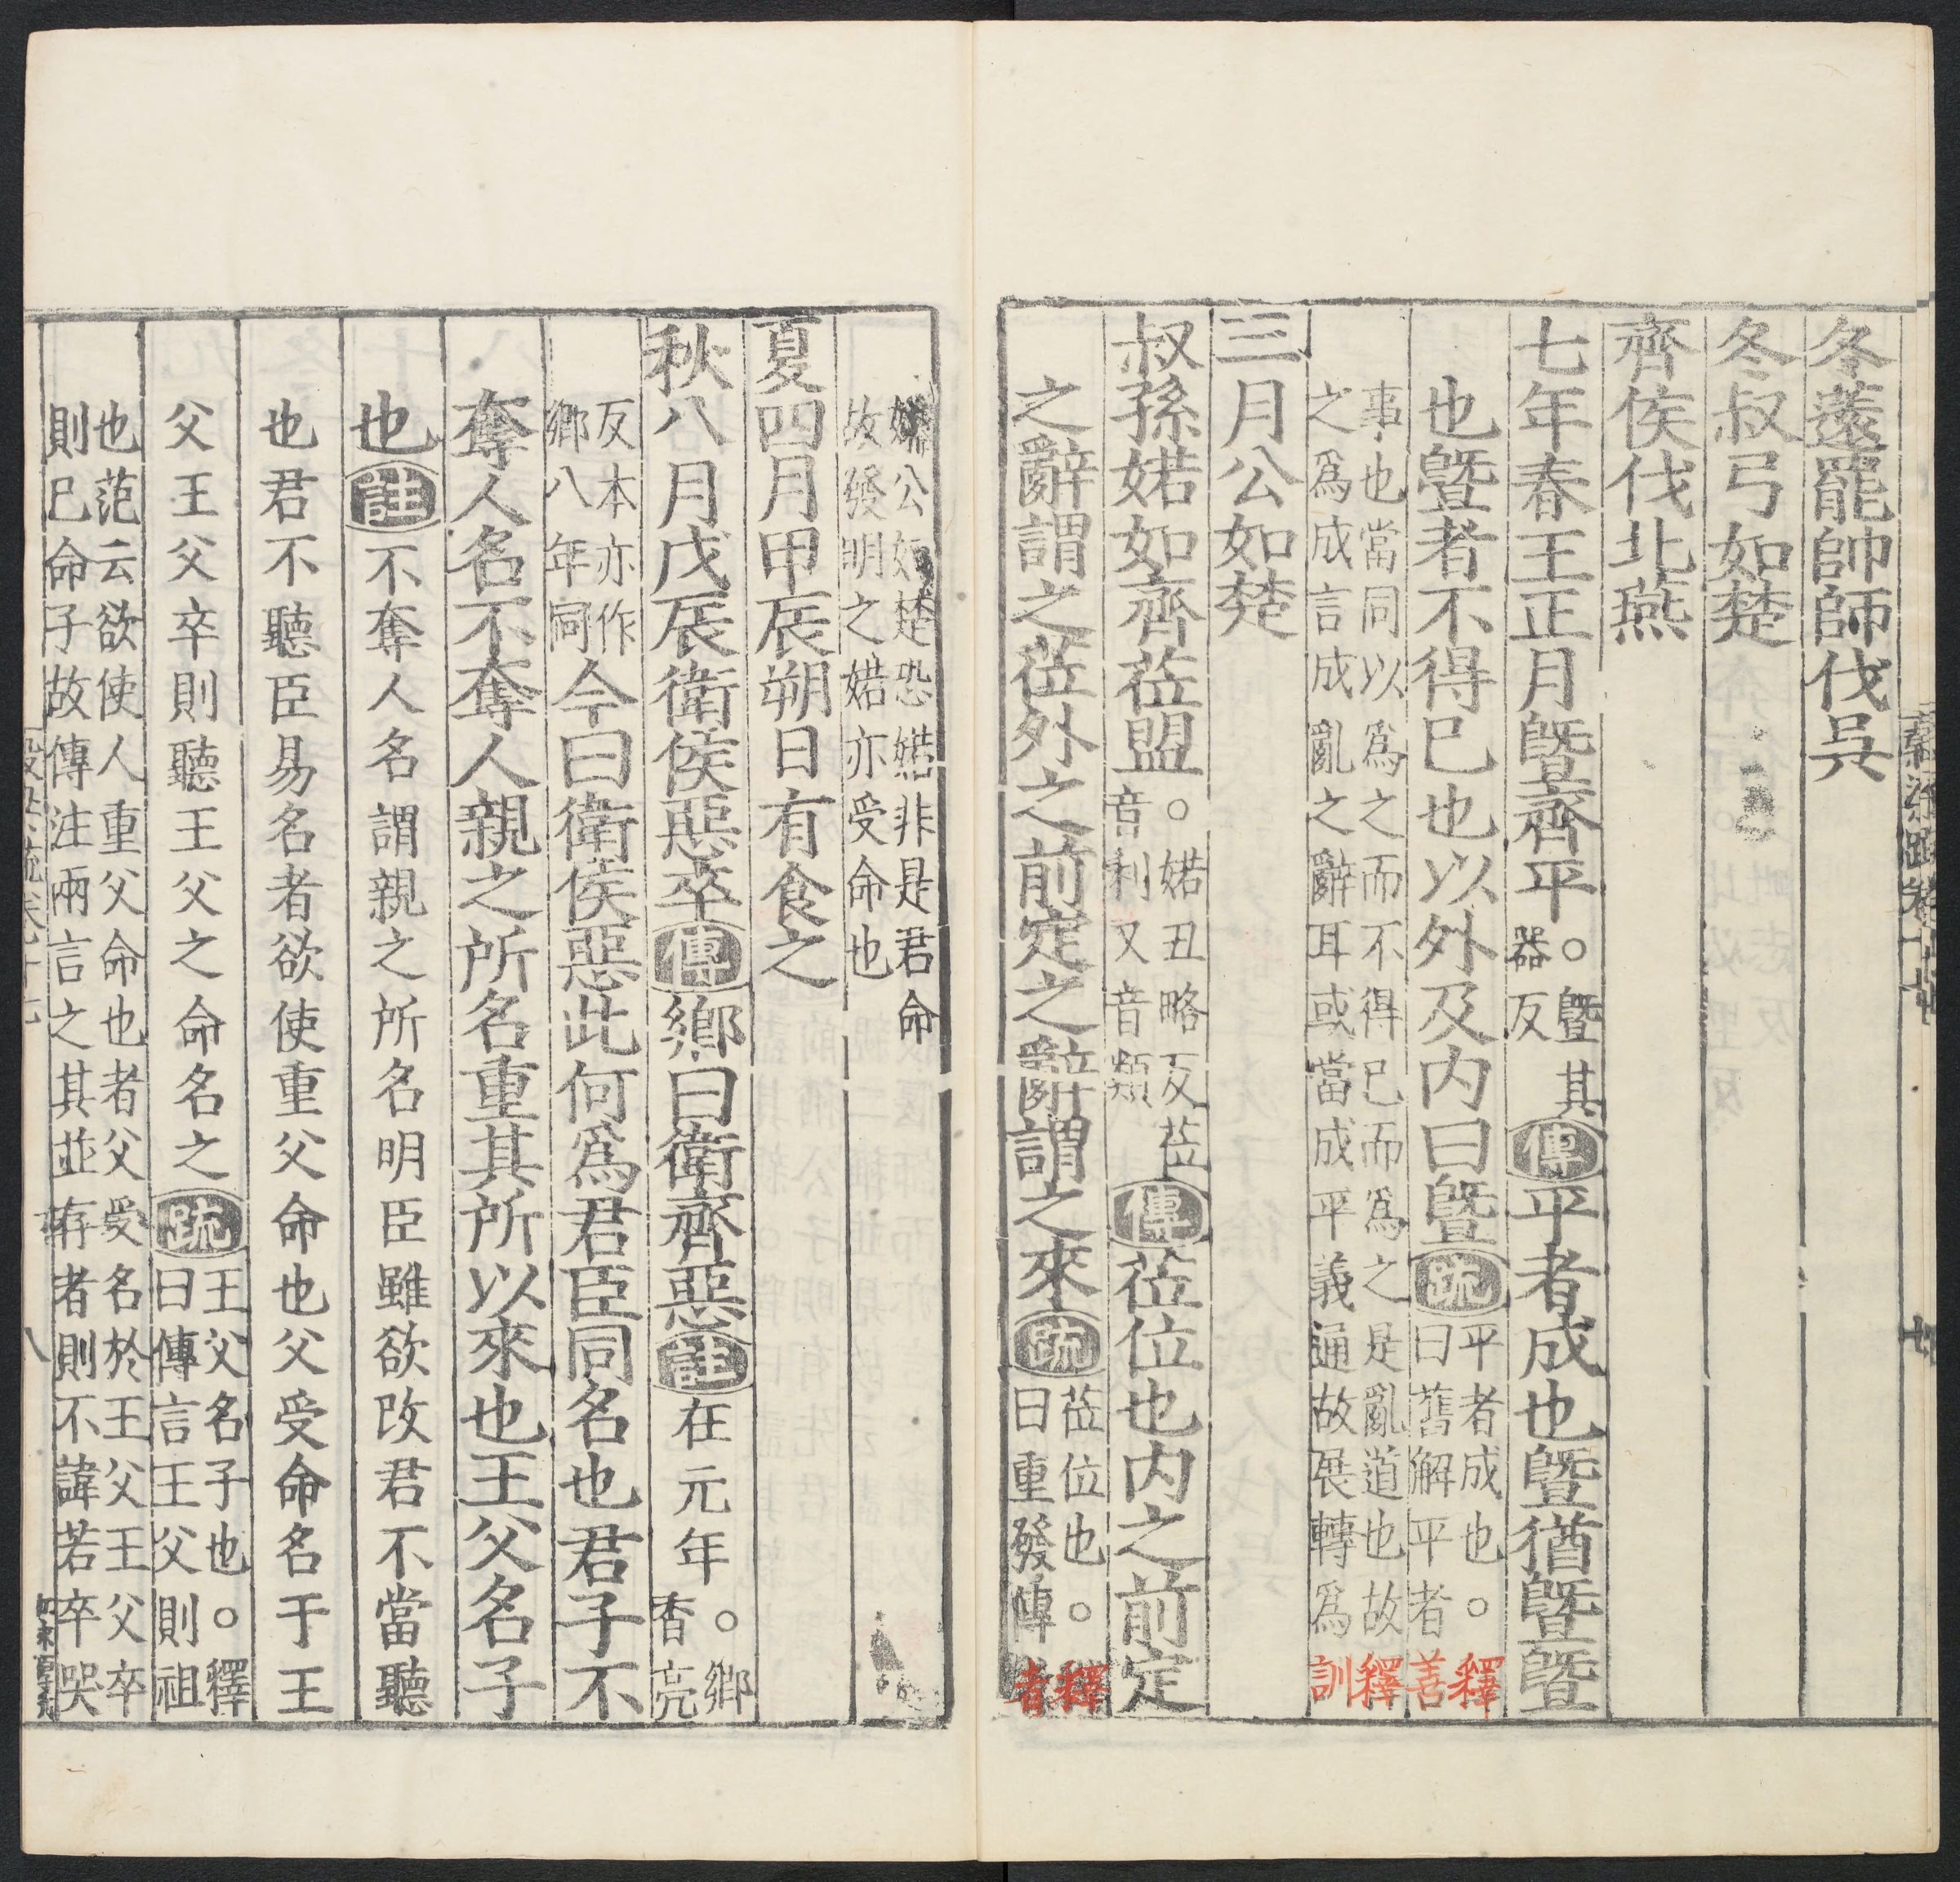 冬薳罷帥師伐吳
冬叔弓如楚
齊侯伐北燕
七年春王正月曁齊平○曁其
器反
傳平者成也曁猶曁曁
也曁者不得已也以外及内曰曁疏平者成也○釋
曰舊解平者善
事也當同以爲之而不得已而爲之是亂道也故釋
之爲成言成亂之辭耳或當成平義通故展轉爲訓
三月公如楚
叔孫婼如齊莅盟○婼丑略反莅
音利又音類
傳莅位也内之前定
之辭謂之莅外之前定之辭謂之來疏莅位也○釋
曰重發傳者
公如楚恐婼非是君命
故發明之婼亦受命也
夏四月甲辰朔日有食之
秋八月戊辰衛侯惡卒傳鄉曰衛齊惡註在元年○鄉
香亮
反本亦作
鄉八年同
今曰衛侯惡此何爲君臣同名也君子不
奪人名不奪人親之所名重其所以來也王父名子
也註不奪人名謂親之所名明臣雖欲改君不當聽
也君不聽臣易名者欲使重父命也父受命名于王
父王父卒則聽王父之命名之疏王父名子也○釋
曰傳言王父則祖
也范云欲使人重父命也者父受名於王父王父卒
則已命子故傳注兩言之其並存者則不諱若卒哭